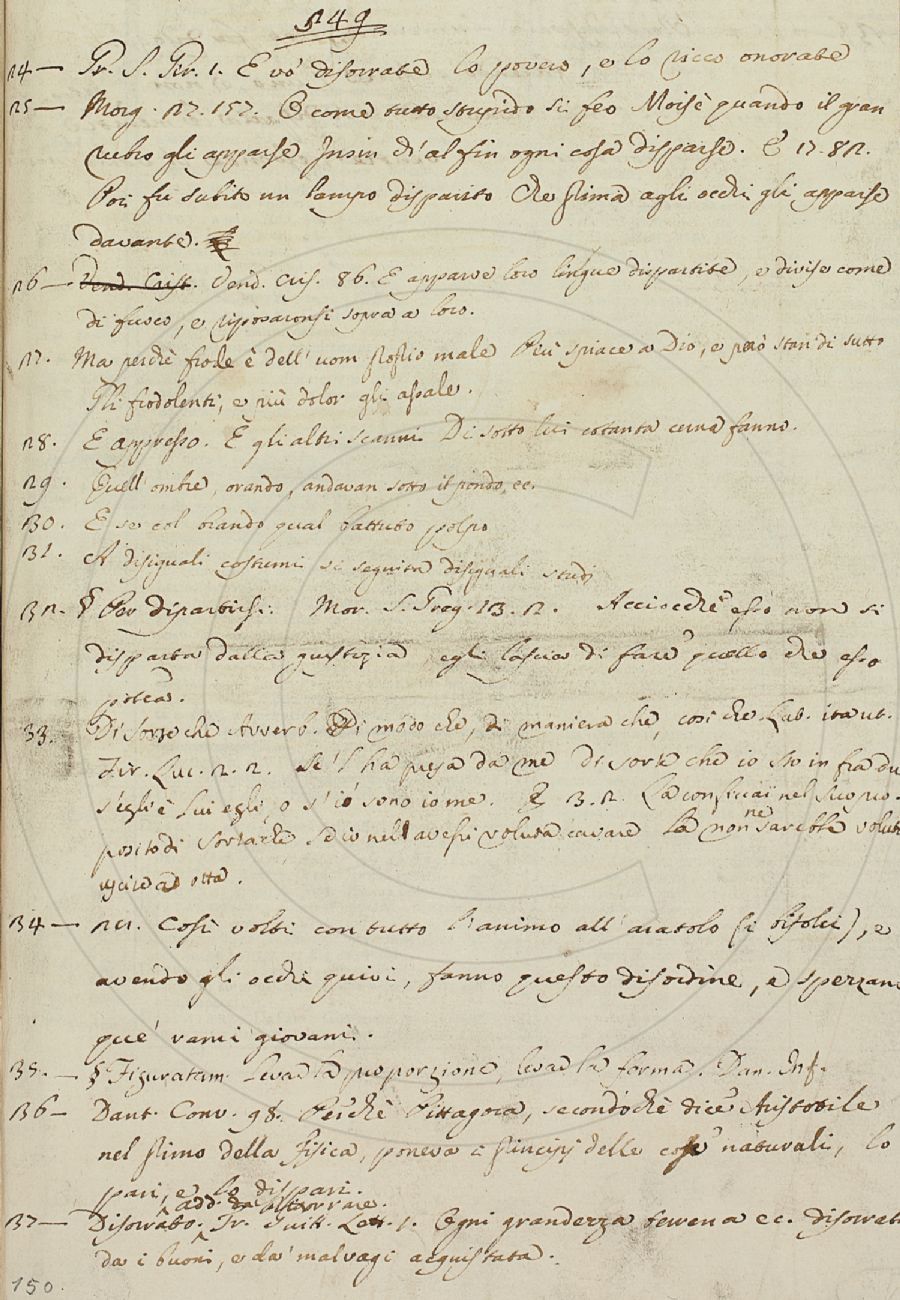 249
24 — Gr. S. Gir. 1. E vò disorrate lo povero, e lo ricco onorate
25 — Morg. 27. 157. E come tutto stupido si feo Moisè quando il gran
rubro gli apparse Insin ch'al fin ogni cosa disparse. E 17. 82.
Poi fu subito un lampo disparito Che prima agli occhi gli apparse
davante.
26 — Vend. Crist. Vend. Cris. 86. E apparve loro lingue dispartite, e divise come
di fuoco, e riposaronsi sopra a loro.
27. Ma perchè frode è dell'uom proprio male Più spiace a Dio, e però stan di sutto
Gli frodolenti, e più dolor gli assale.
28. E appresso. E gli altri scanni Di sotto lui cotanta cerna fanno.
29. Quell'ombre, orando, andavan sotto il pondo, ec.
30. E se col brando qual battuto polpo
31. A disiguali costumi si seguita disiguali studj
32. § Per dipartirsi. Mor. S. Greg. 13. 2. Acciocchè esso non si
disparta dalla giustizia egli lascia di fare quello che esso
potea.
33. Di sorte che Avverb. Di modo che, di maniera che, così che Lat. ita ut.
Fir. Luc. 2. 2. Se l'ha presa da me di sorte che io sto in fra du
s'egli è lui egli, o s'iò sono io me. E 3. 2. La conficcai nel suo pro-
posito di sortarle, se io nell'avessi voluta cavare la non ne sarebbe voluta
uscire ad otta.
34 — 21. Così volti con tutto l'animo all'aratolo (i bifolci), e
avendo gli occhi quivi, fanno questo disordine, e sperzano
que' rami giovani.
35. — § Figuratam. Leva la proporzione, leva la forma. Dan. Inf.
36 — Dant. Conv. 98. Perchè Pittagora, secondochè dice Aristotile
nel primo della Fisica, poneva i principj delle cose naturali, lo
pari, e lo dispari.
add. da disorrare.
37 — Disorrato. Fr. Guitt. Lett. 1. Ogni grandezza terrena ec. disorrata
da i buoni, e da' malvagi acquistata.
150.